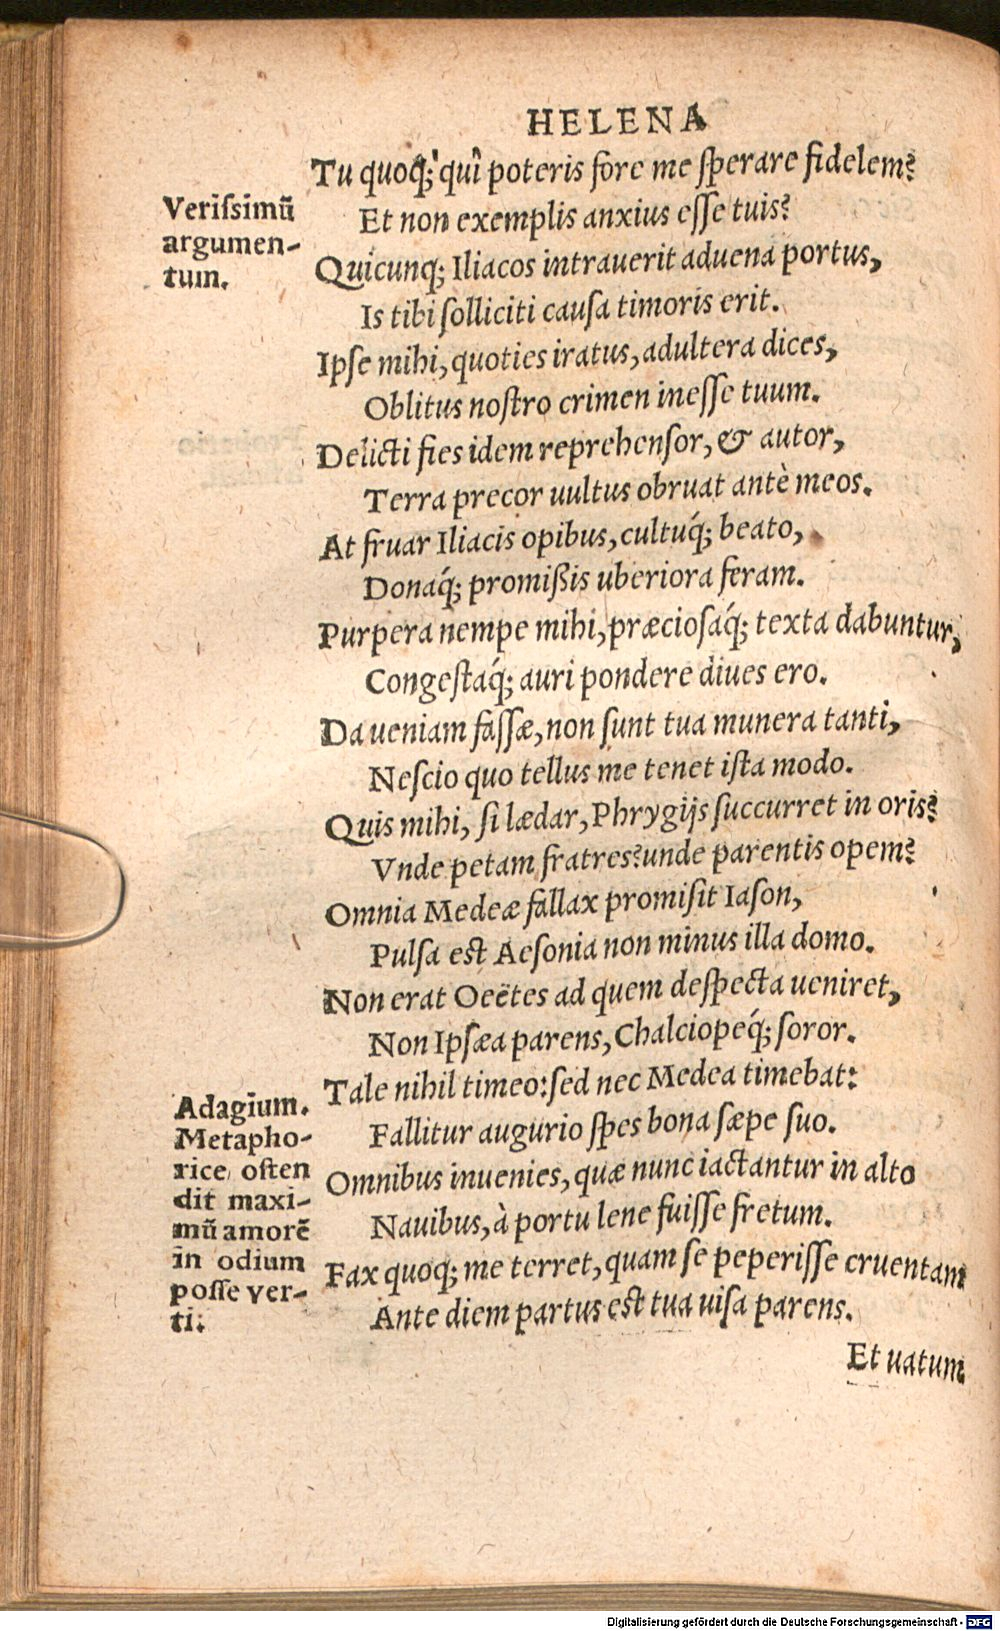 HELENA
Tu quoq; quî poteris fore me ſperare fidelem?
Veriſsimũ
argumen-
tum.
Et non exemplis anxius eſſe tuis?
Quicunq; Iliacos intrauerit aduena portus,
Is tibi ſolliciti cauſa timoris erit.
Ipſe mihi, quoties iratus, adultera dices,
Oblitus noſtro crimen ineſſe tuum.
Delicti fies idem reprehenſor, & autor,
Terra precor uultus obruat antè meos.
At fruar Iliacis opibus, cultuq́; beato,
Donaq́; promißis uberiora feram.
Purpera nempe mihi, præcioſaq́; texta dabuntur,
Congeſtaq́; auri pondere diues ero.
Da ueniam faſſæ, non ſunt tua munera tanti,
Neſcio quo tellus me tenet iſta modo.
Quis mihi, ſi lædar, Phrygijs ſuccurret in oris?
Vnde petam fratres? unde parentis opem?
Omnia Medeæ fallax promiſit Iaſon,
Pulſa eſt Aeſonia non minus illa domo.
Non erat Oeëtes ad quem deſpecta ueniret,
Non Ipſæa parens, Chalciopeq́; ſoror.
Tale nihil timeo: ſed nec Medea timebat:
Adagium.
Metapho-
rice oſten
dit maxi-
mũ amorẽ
in odium
poſſe ver-
ti.
Fallitur augurio ſpes bona ſæpe ſuo.
Omnibus inuenies, quæ nunc iactantur in alto
Nauibus, à portu lene fuiſſe fretum.
Fax quoq; me terret, quam ſe peperiſſe cruentam
Ante diem partus eſt tua uiſa parens.
Et uatum
Digitalisierung gefördert durch die Deutsche Forschungsgemeinschaft - DFG